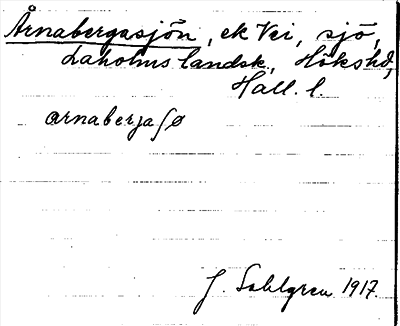 Årnabergasjön, ek Vei, sjö,
Laholms landsk., Hökshd,
Hall. l.
arnaberjaʃø
J. Sahlgren 1917.